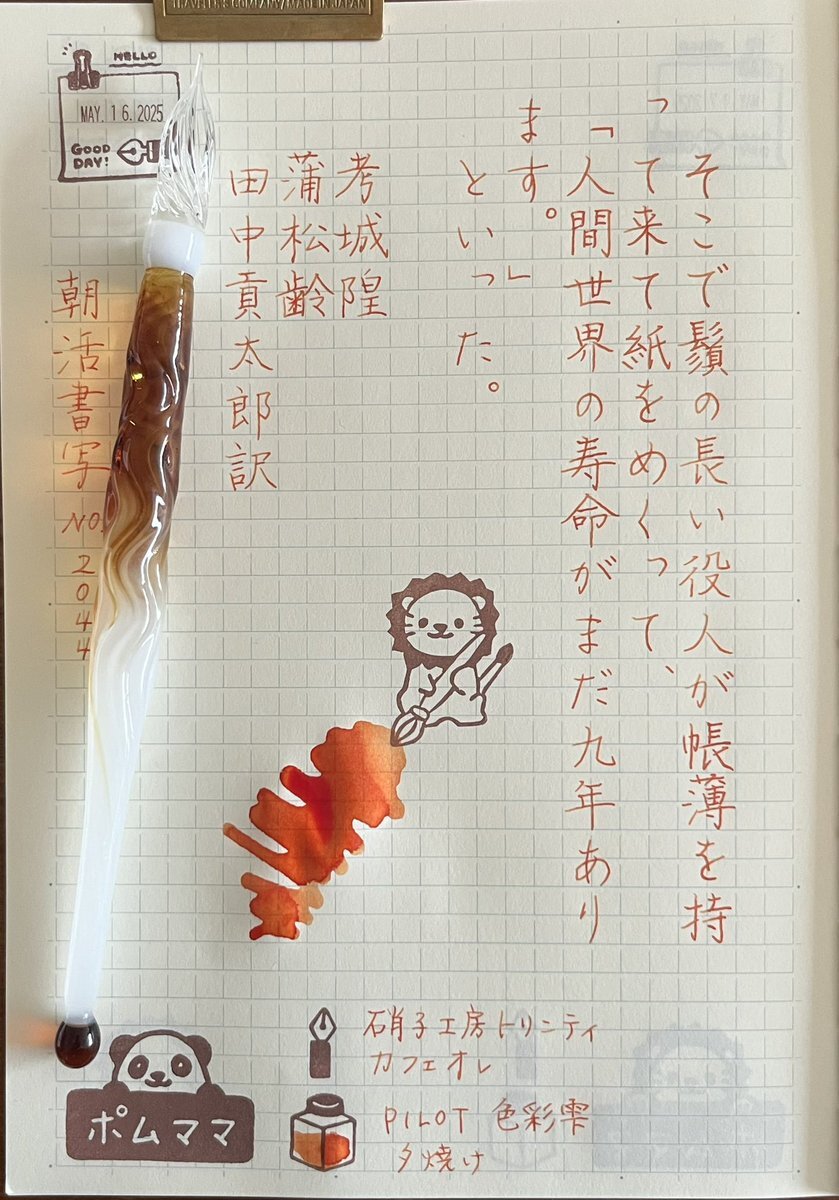 TRAVELER'S COMPANY MADE IN JAPAN
HELLO
MAY. 16. 2025
GOOD
DAY!
そこで鬚の長い役人が帳薄を持
って来て紙をめくって、
「人間世界の寿命がまだ九年あり
ます。」
といった。
考城隍
蒲松齢
田中貢太郎訳
朝活書写NO.2044
硝子工房トリニティ
カフェオレ
PILOT 色彩雫
夕焼け
ポムママ